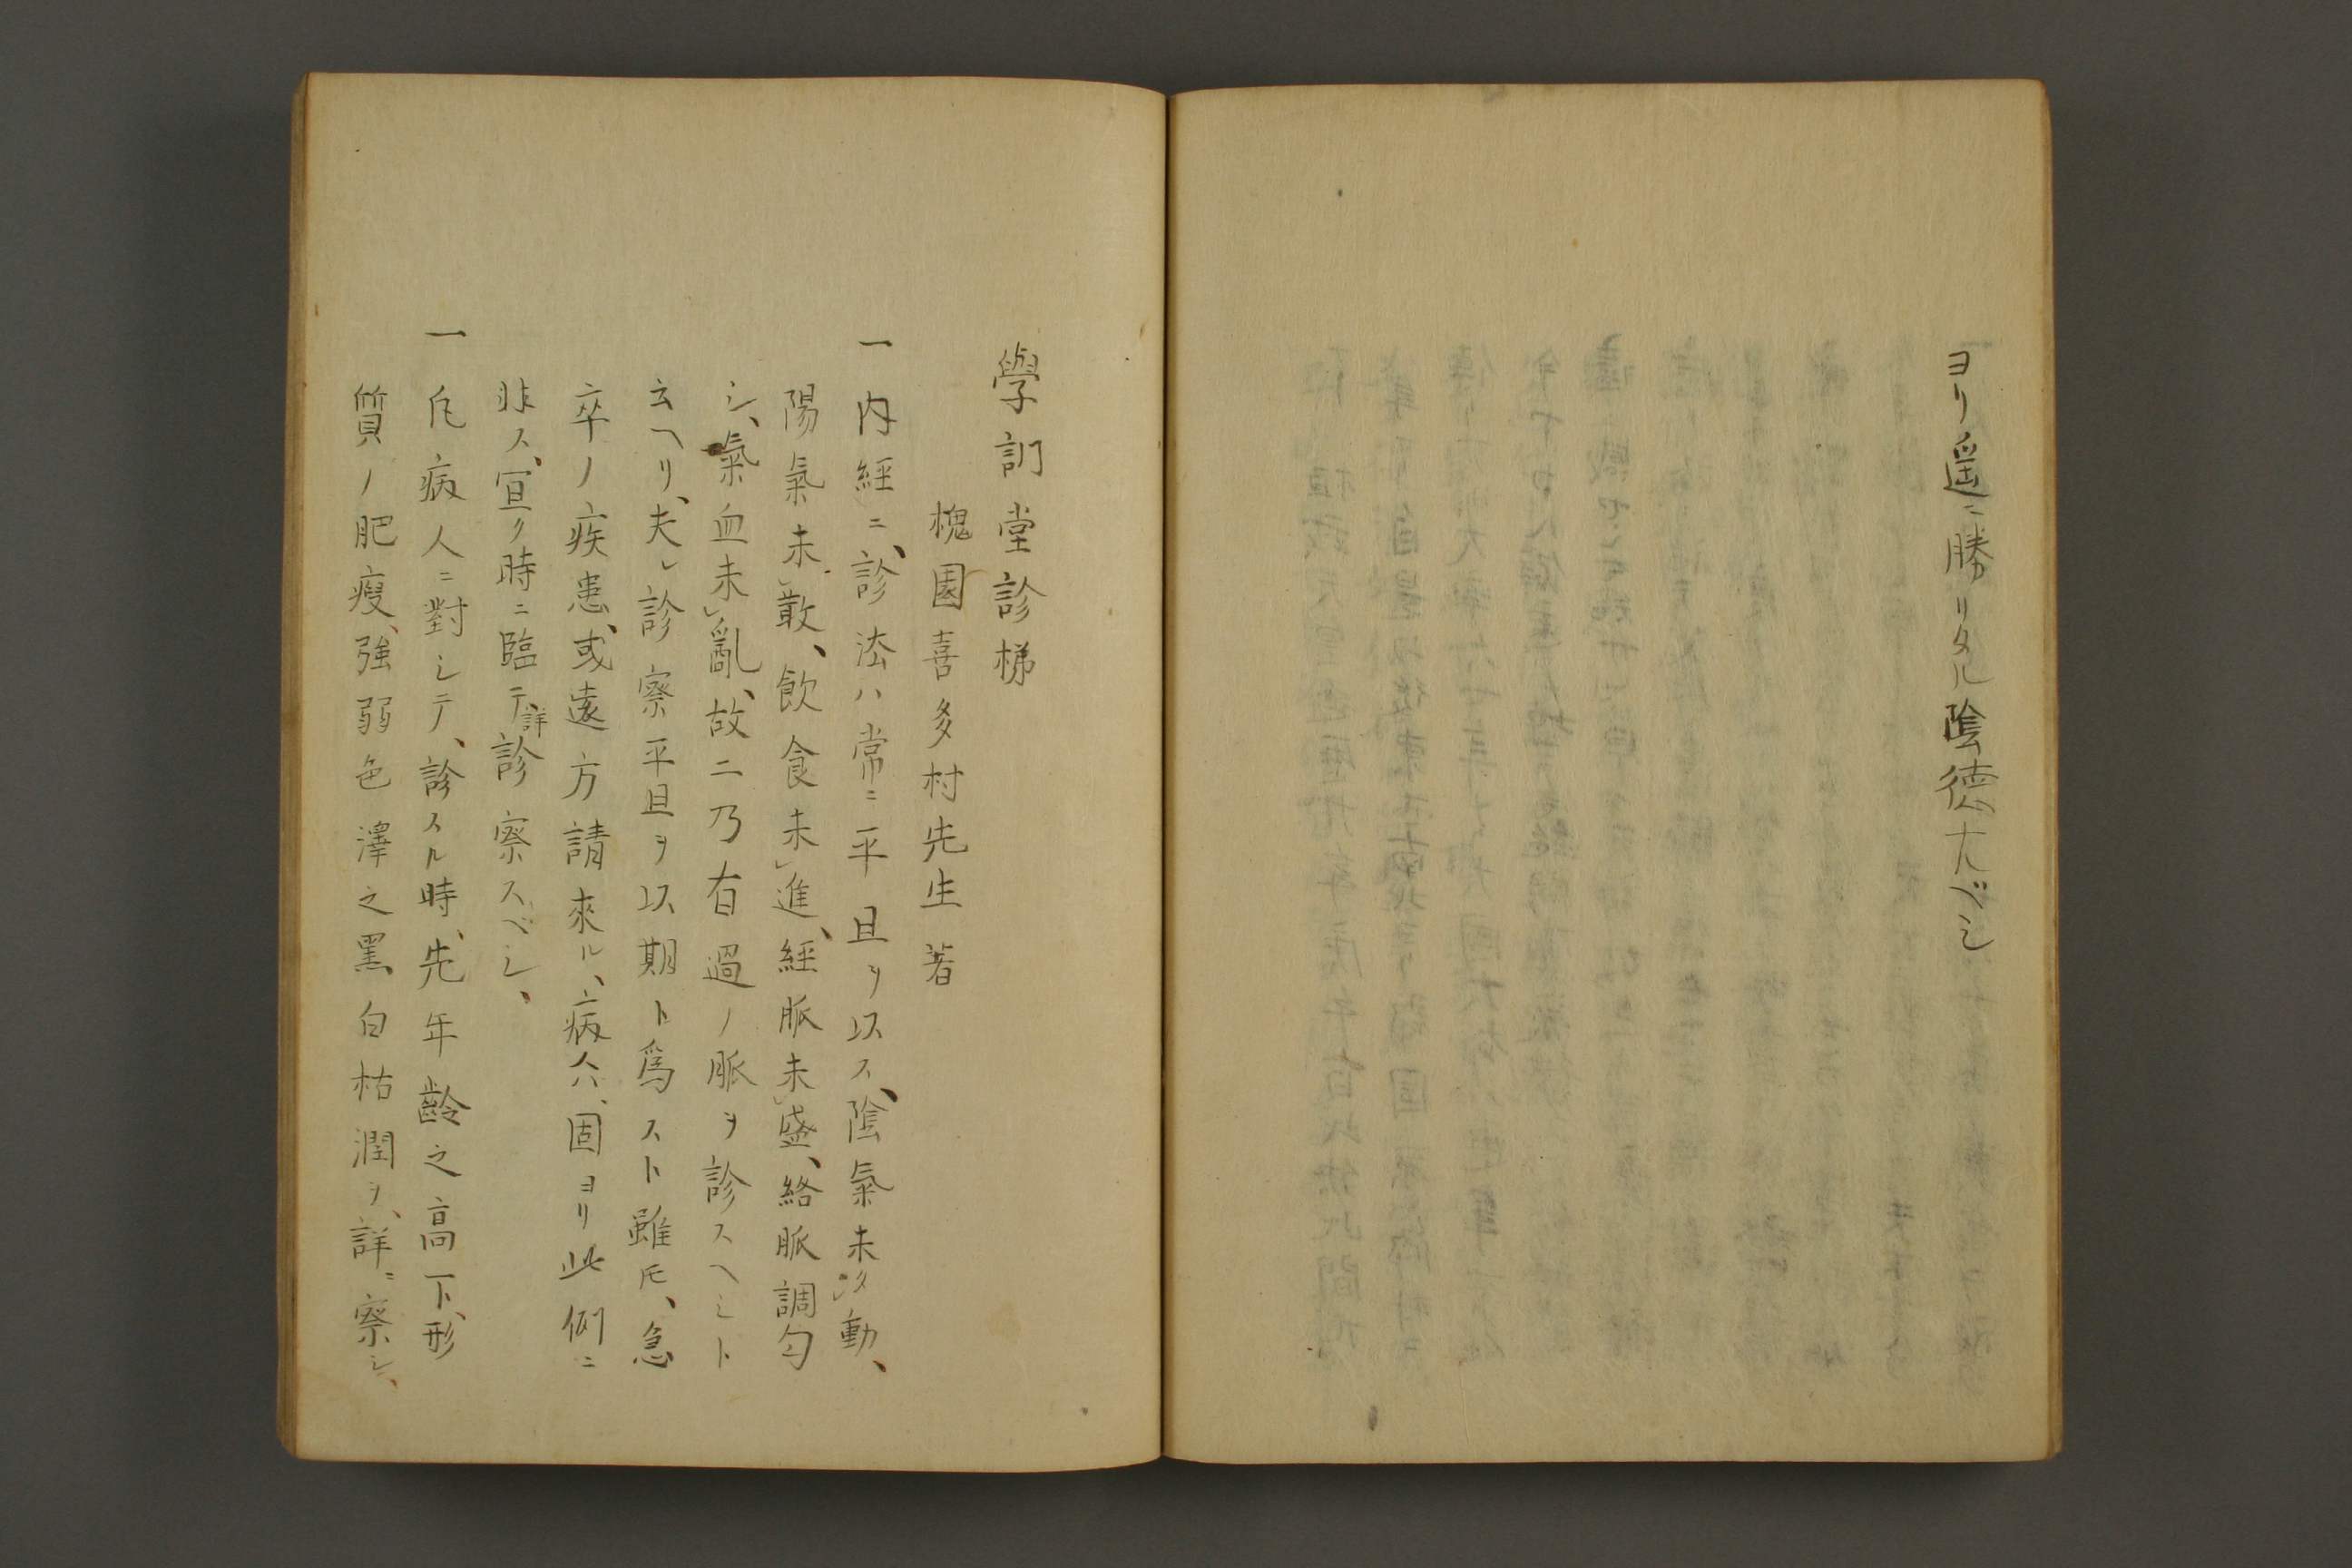 ヨリ遥ニ勝リタル陰徳ナルベシ
學訓堂診梯
槐園喜多村先生著
一内経ニ、診法ハ常ニ平旦ヲ以ス、陰氣未タ動、
陽氣未レ散、飲食未レ進、経脈未レ盛、絡脈調匀
シ、氣血未レ亂、故ニ乃有過ノ脈ヲ診スヘシト
云ヘリ、夫レ診察平旦ヲ以期ト爲スト雖𪜈、急
卒ノ疾患、或遠方請來ル、病人ハ、固ヨリ此例ニ
非ス、宜ク時ニ臨テ、詳診察スベシ、
一凡病人ニ對シテ、診スル時、先年齢之高下、形
質ノ肥痩、強弱色澤之黒白枯潤ヲ、詳ニ察シ、